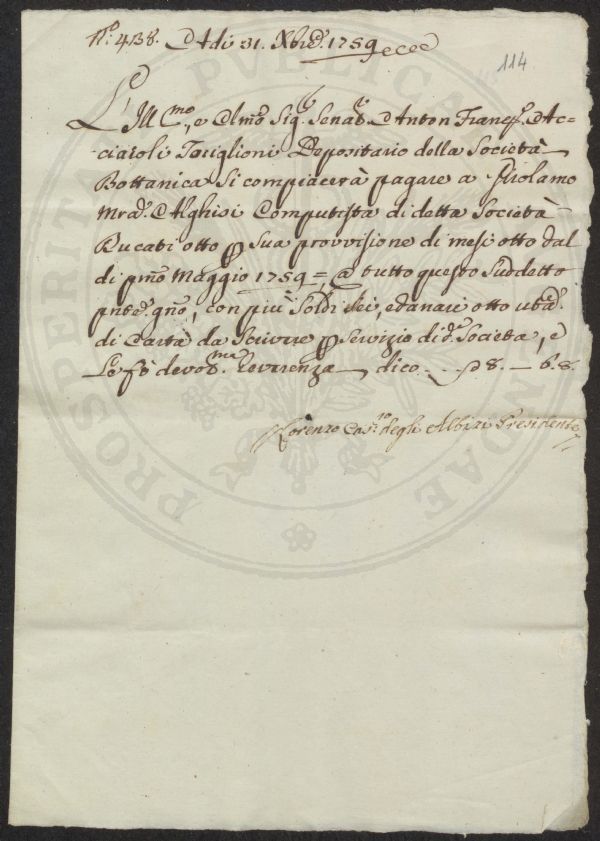 N.º 438. Adi 31. Xbre. 1759
114
L'Ill.mo, e Clmo Sig.r Senat.e Anton Franc.º Ac-
ciaioli Toriglioni Depositario della Società
Bottanica si compiacerà pagare a Girolamo
Mrã. Alghisi Computista di detta Società
Ducati otto p sua provvisione di mesi otto dal
di pmo Maggio 1759 = @ tutto questo suddetto
pnte. gno, con più Soldi sei, e danari otto
di Carta da Scrivere p servizio di d.ª Società, e
Le fò devot.ma Reverenza dico - - 8. — 6. 8.
Lorenzo Cas.ro degli Albizi Presidente
PROSPERITATI PVBLICAE AVGENDAE